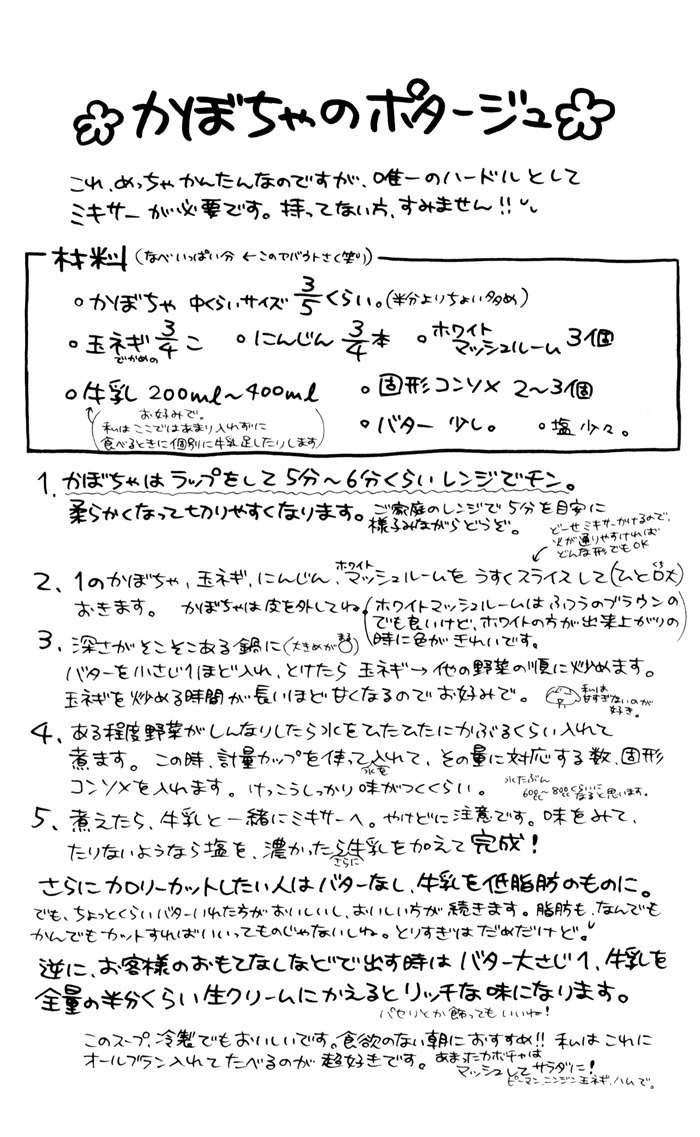 かぼちゃのポタージュ
これ、めっちゃかんたんなのですが、唯一のハードルとして
ミキサーが必要です。持ってない方、すみません!!
材料(なべいっぱい分 ←このアバウトさ(笑))
○かぼちゃ 中くらいサイズ 3/5 くらい。(半分よりちょい多め)
○玉ネギ 3/4 こ ○にんじん 3/4 本 ○ホワイトマッシュルーム 3個
でかめの
○牛乳 200ml〜400ml ○固形コンソメ 2〜3個
お好みで。
私はここではあまり入れずに
食べるときに個別に牛乳足したりします
○バター 少し。 ○塩 少々。
1. かぼちゃはラップをして5分〜6分くらいレンジでチン。
柔らかくなって切りやすくなります。ご家庭のレンジで5分を目安に
様子みながらどうぞ。
どーせミキサーかけるので、
火が通りやすければ
どんな形でもOK
2. 1のかぼちゃ、玉ネギ、にんじん、ホワイトマッシュルームをうすくスライスして(ひと口大)
おきます。 かぼちゃは皮を外してね。
ホワイトマッシュルームはふつうのブラウンの
でも良いけど、ホワイトの方が出来上がりの
時に色がきれいです。
3. 深さがそこそこある鍋に(大きめが)
バターを小さじ1ほど入れ、とけたら 玉ネギ→他の野菜の順に炒めます。
玉ネギを炒める時間が長いほど甘くなるのでお好みで。
私は
甘すぎないのが
好き。
4. ある程度野菜がしんなりしたら水をひたひたにかぶるくらい入れて
煮ます。 この時、計量カップを使って水を入れて、その量に対応する数、固形
コンソメを入れます。けっこうしっかり味がつくくらい。
水たぶん
600cc〜800ccくらいに
なると思います。
5. 煮えたら、牛乳と一緒にミキサーへ。やけどに注意です。味をみて、
たりないようなら塩を、濃かったらさらに牛乳を加えて完成!
さらにカロリーカットしたい人はバターなし、牛乳を低脂肪のものに。
でも、ちょっとくらいバターいれた方がおいしいし、おいしい方が続きます。脂肪も、なんでも
かんでもカットすればいいってものじゃないしね。とりすぎはだめだけど。
逆に、お客様のおもてなしなどで出す時はバター大さじ1、牛乳を
全量の半分くらい生クリームにかえるとリッチな味になります。
パセリとか飾ってもいいね!
このスープ、冷製でもおいしいです。食欲のない朝におすすめ!! 私はこれに
オールブラン入れてたべるのが超好きです。
あまったカボチャは
マッシュしてサラダに!
ピーマン、ニンジン、玉ネギ、ハムで。